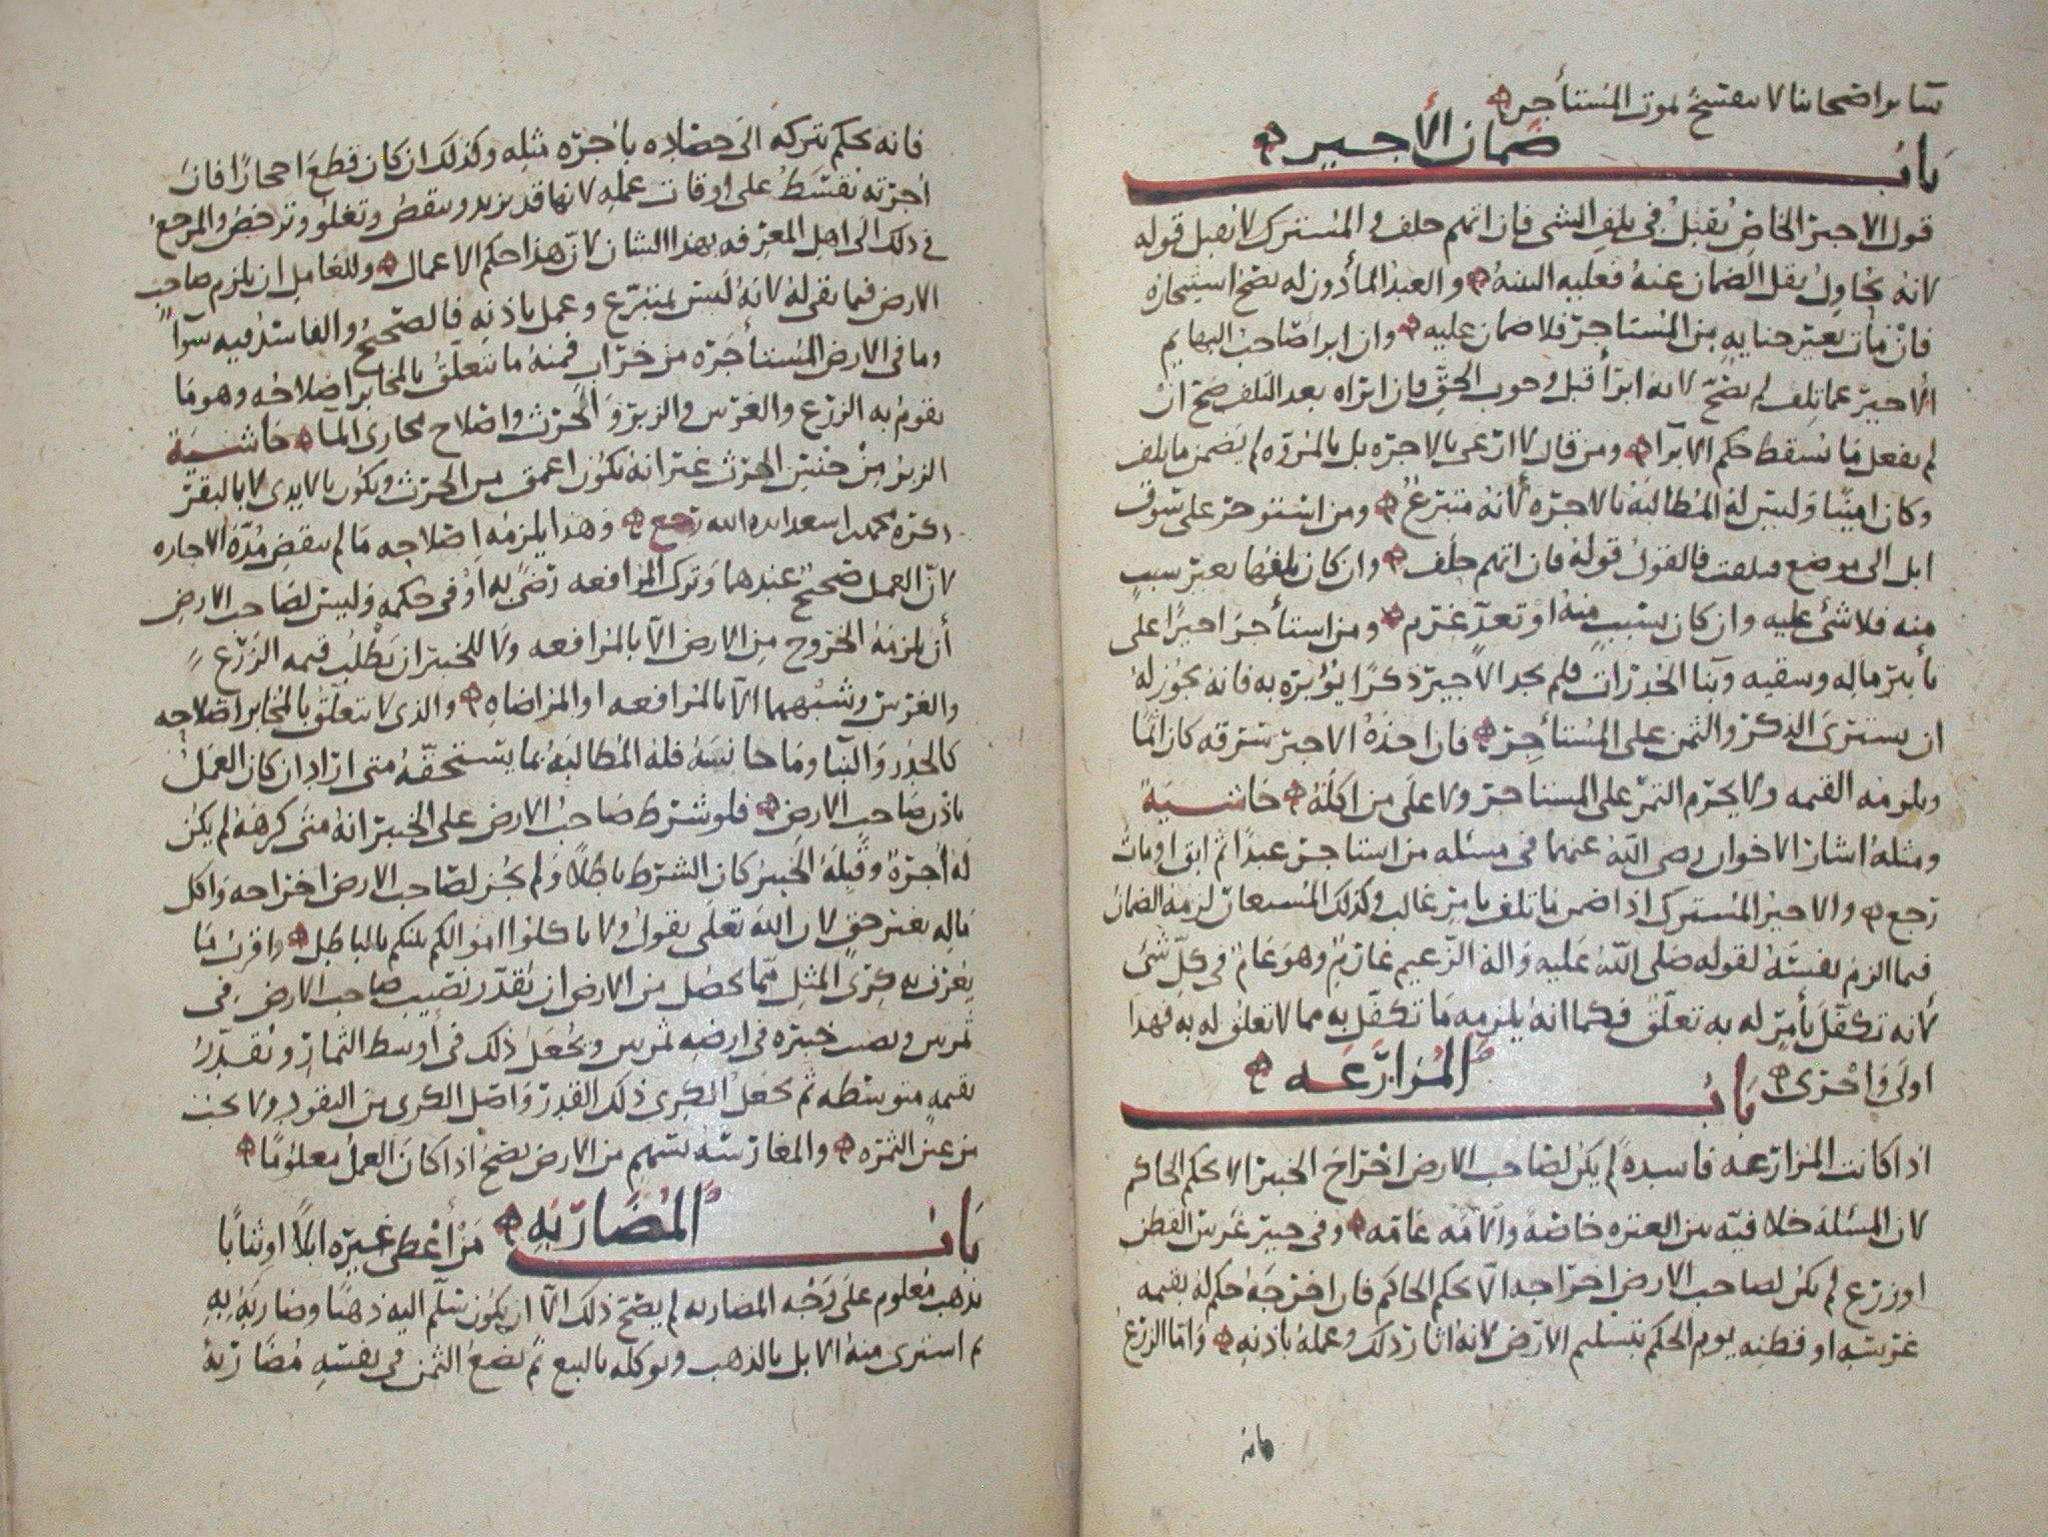 واصحابنا لا ينفسخ بموت المستأجر
باب ضمان الأجير
قول الاجير الخاص يُقبل في تلف الشى فان اتهم حلف والمشترك لا يقبل قوله
لانه يحاول نقل الضمان عنه فعليه البينه والعبد المأذون له يصح استيجاره
فان مات بغير جنايه من المستاجر فلا ضمان عليه وان ابرا صاحب البهايم
الاجير عما تلف لم يصح لانه ابرأ قبل وجوب الحق فان ابراه بعد التلف صح ان
لم يفعل ما يسقط حكم الابرا ومن قال لا ارعى بالاجره بل بالمروه لم يضمن ما تلف
وكان امينًا وليس له المطالبة بالاجره لأنه متبرع ومن استوجر على سوق
ابل الى موضع فتلفت فالقول قوله فان اتهم حلف وان كان تلفها بغير سبب
منه فلا شى عليه وان كان بسبب منه او تعدٍّ غرم ومن استأجر اجيرًا على
تأبير ماله وسقيه وبنا الجدرات فلم يجد الاجير ذكرًا يؤبره به فانه يجوز له
ان يشترى الذكر والثمن على المستأجر فان اخذه الاجير بسرقه كان اثمًا
ويلزمه القيمه ولا يحرم الثمر على المستاجر ولا على من اكله حاشية
ومثله اشار الاخوان رضى الله عنهما فى مسئله من استاجر عبدًا ثم ابق او مات
رجع والاجير المشترك اذا ضمن ما تلف بامر غالب وكذلك المستعار لزمه الضمان
فيما الزم نفسه لقوله صلى الله عليه واله الزعيم غارم وهو عام فى كل شى
لأنه تكفل بأمر له به تعلق فكما انه يلزمه ما تكفل به مما لا تعلق له به فهذا
اولى واحرى باب المزارعه
اذا كانت المزارعه فاسده لم يكن لصاحب الارض اخراج الخبير الا بحكم الحاكم
لان المسئله خلافيه بين العتره خاصه والامه عامه وفى خبير غرس القطن
او زرع لم يكن لصاحب الارض اخراجه الا بحكم الحاكم فان اخرجه حكم له بقيمه
غرسه او قطنه يوم الحكم بتسليم الارض لانه اثار ذلك وعمله باذنه واما الزرع
فانه
فانه يحكم بتركه الى حصاده باجره مثله وكذلك ان كان قطع احجارًا فان
اجرته تقسط على اوقات عمله لانها قد يزيد وينقص وتغلو وترخص والمرجع
في ذلك الى اهل المعرفه بهذا الشان لان هذا حكم الاعمال وللعامل ان يلزم صاحب
الارض فيما بقى له لانه ليس بمتبرع وعمل باذنه فالصحيح والفاسد فيه سوآ
وما فى الارض المستأجره من خراب فمنه ما يتعلق بالمخابر اصلاحه وهو ما
يقوم به الزرع والغرس والزبر والحرث واصلاح مجارى المآ حاشية
الزبر من جنس الحرث غير انه يكون اعمق من الحرث ويكون بالايدى لا بالبقر
ذكره محمد بن اسعد ايده الله رجع وهذا يلزمه اصلاحه ما لم ينقض مدة الاجاره
لان العمل صحيح عندهما وترك المرافعه رضى به او فى حكمه وليس لصاحب الارض
أن يلزمه الخروج من الارض الا بالمرافعه ولا للخبير ان يطلب قيمه الزرع
والغرس وشبههما الا بالمرافعه او المراضاه والذى لا يتعلق بالمخابر اصلاحه
كالجدر والبنا وما جانسه فله المطالبه بما يستحقه متى اراد ان كان العمل
باذن صاحب الارض فلو شرط صاحب الارض على الخبير انه متى كرهه لم يكن
له اجرة وقبله الخبير كان الشرط باطلًا ولم يجز لصاحب الارض اخراجه واكل
ماله بغير حق لان الله تعلى يقول ولا تاكلوا اموالكم بينكم بالباطل واقرب ما
يعرف به كرى المثل مما يحصل من الارض ان يقدر نصيب صاحب الارض فى
ثمرين ونصيب خبيره فى ارضه ثمرين ويجعل ذلك فى أوسط الثمار ويقدر
بقيمه متوسطه ثم يجعل الكرى ذلك القدر واصل الكرى من النقود ولا يجب
من عين الثمره والمغارسه بسهم من الارض يصح اذا كان العمل معلومًا
باب المضاربه من أعطى غيره ابلًا او ثيابًا
بذهب معلوم على وجه المضاربه لم يصح ذلك الا ان يكون سلّم اليه ذهبًا وضاربه به
ثم اشترى منه الابل بالذهب ويوكله بالبيع ثم يضع الثمن فى نفسه مضاربة